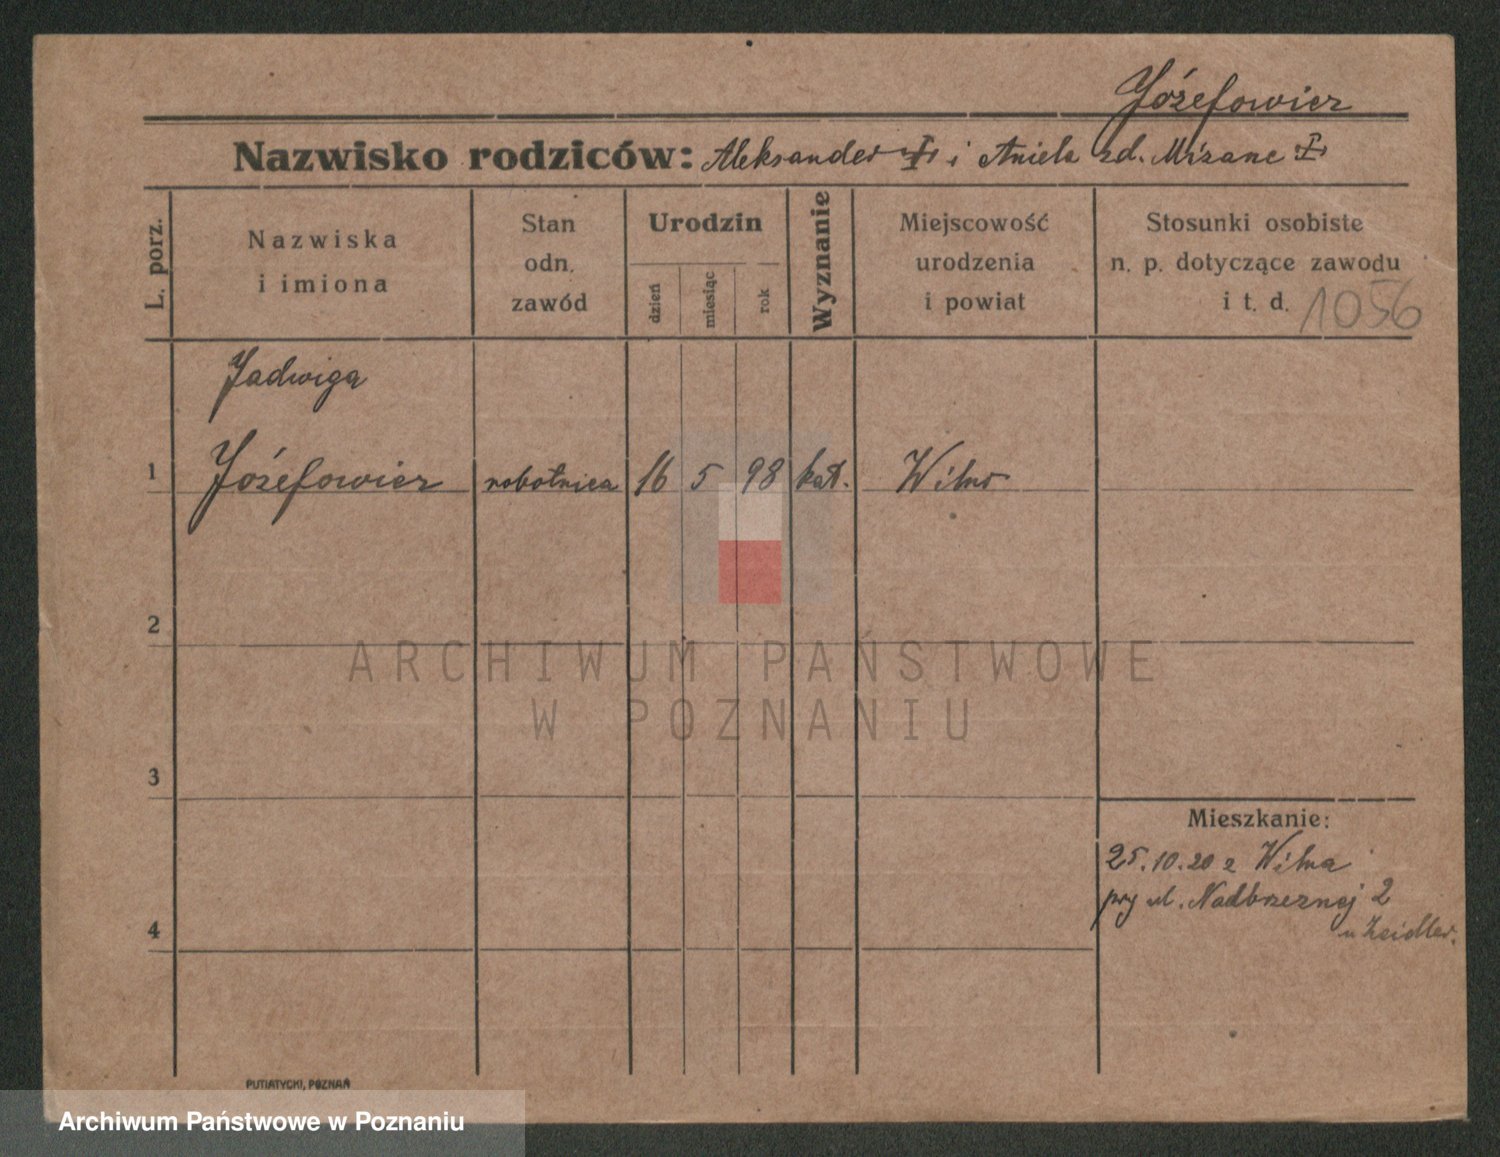 Józefowicz
Nazwisko rodziców: Aleksander i Aniela zd.
L. porz.
Nazwiska
i imiona
Stan
odn.
zawód
Urodzin
dzień
miesiąc
rok
Wyznanie
Miejscowość
urodzenia
i powiat
Stosunki osobiste
n. p. dotyczące zawodu
i t. d. 1056
Jadwiga
1 Józefowicz robotnica 16 5 98 kat. Wilno
2
ARCHIWUM PAŃSTWOWE
W POZNANIU
3
Mieszkanie:
25.10.20 z Wilna
przy ul. Nadbrzeznej 2
u Zeidler.
4
PUTIATYCKI, POZNAŃ
Archiwum Państwowe w Poznaniu